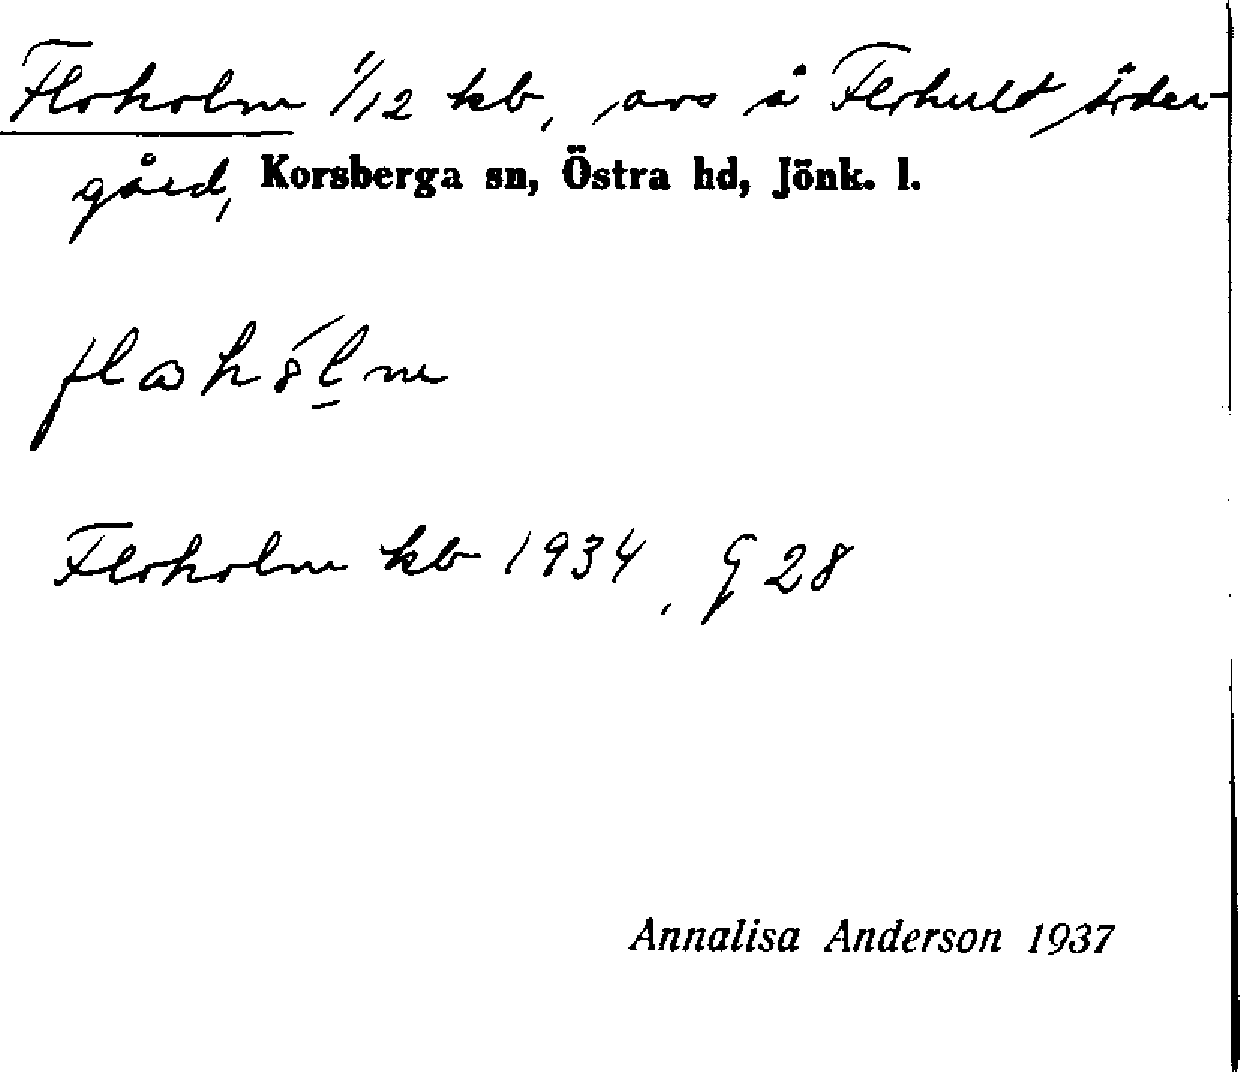 Floholm 1/12 kb, avs å Flohult Söder-
gård, Korsberga sn, Östra hd, Jönk. l.
Floholm kb 1934, G 28
Annalisa Anderson 1937